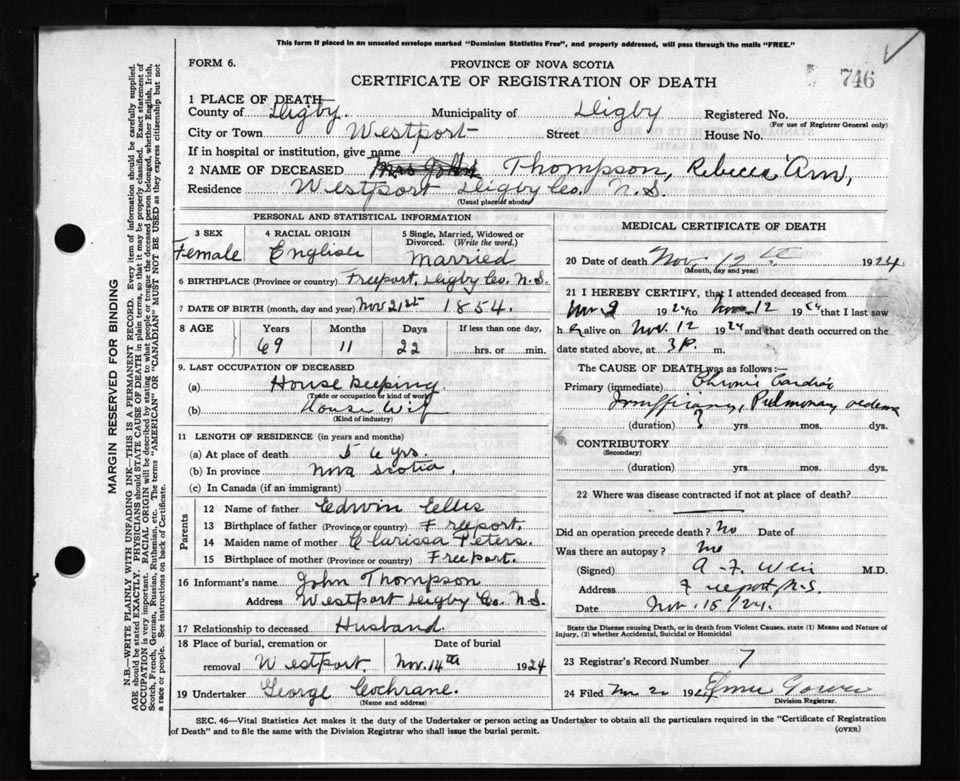 This form if placed in an unsealed envelope marked "Dominion Statistics Free", and properly addressed, will pass through the mails "FREE."
FORM 6.
PROVINCE OF NOVA SCOTIA
CERTIFICATE OF REGISTRATION OF DEATH
746
1 PLACE OF DEATH—
County of Digby Municipality of Digby Registered No.
(For use of Registrar General only)
City or Town Westport Street House No.
If in hospital or institution, give name
2 NAME OF DECEASED Mrs John Thompson, Rebecca Ann,
Residence Westport Digby Co. N.S.
(Usual place of abode)
PERSONAL AND STATISTICAL INFORMATION
3 SEX 4 RACIAL ORIGIN 5 Single, Married, Widowed or Divorced. (Write the word.)
Female English Married
6 BIRTHPLACE (Province or country) Freeport, Digby Co. N.S.
7 DATE OF BIRTH (month, day and year) Nov 21st 1854.
8 AGE Years Months Days If less than one day,
69 11 22 hrs. or min.
9. LAST OCCUPATION OF DECEASED
(a) House Keeping.
(Trade or occupation or kind of work)
(b) House Wif
(Kind of industry)
11 LENGTH OF RESIDENCE (in years and months)
(a) At place of death 56 yrs.
(b) In province Nova Scotia,
(c) In Canada (if an immigrant)
Parents
12 Name of father Edwin Ellis
13 Birthplace of father (Province or country) Freeport.
14 Maiden name of mother Clarissa Peters.
15 Birthplace of mother (Province or country) Freeport.
16 Informant's name John Thompson
Address Westport Digby Co. N.S.
17 Relationship to deceased Husband
18 Place of burial, cremation or Date of burial
removal Westport. Nov. 14th 1924
19 Undertaker George Cochrane.
(Name and address)
MEDICAL CERTIFICATE OF DEATH
20 Date of death Nov. 12th 1924
(Month, day and year)
21 I HEREBY CERTIFY, that I attended deceased from
1924 to Nov. 12 1924 that I last saw
h alive on Nov. 12 1924 and that death occurred on
date stated above, at 3 P. m.
The CAUSE OF DEATH was as follows:—
Primary (immediate) Chronic Cardiac
Insufficiency, Pulmonary oedema
(duration) ? yrs. mos. dys.
CONTRIBUTORY
(Secondary)
(duration) yrs. mos. dys.
22 Where was disease contracted if not at place of death?
Did an operation precede death? No Date of
Was there an autopsy? no
(Signed) A. F. Weir M.D.
Address Freeport, N.S.
Date Nov. 15/24.
State the Disease causing Death, or in death from Violent Causes, state (1) Means and Nature of
Injury, (2) whether Accidental, Suicidal or Homicidal
23 Registrar's Record Number 7
24 Filed 192
Division Registrar.
SEC. 46—Vital Statistics Act makes it the duty of the Undertaker or person acting as Undertaker to obtain all the particulars required in the "Certificate of Registration
of Death" and to file the same with the Division Registrar who shall issue the burial permit.
(OVER)
MARGIN RESERVED FOR BINDING
N.B.—WRITE PLAINLY WITH UNFADING INK—THIS IS A PERMANENT RECORD. Every item of information should be carefully supplied.
AGE should be stated EXACTLY. PHYSICIANS should STATE CAUSE OF DEATH in plain terms, so that it may be properly classified. Exact statement of
OCCUPATION is very important. RACIAL ORIGIN will be described by stating to what people or tongue the deceased person belonged, whether English, Irish,
Scotch, French, German, Russian, Ruthenian, etc. The terms "AMERICAN" OR "CANADIAN" MUST NOT BE USED as they express citizenship but not
a race or people. See instructions on back of Certificate.